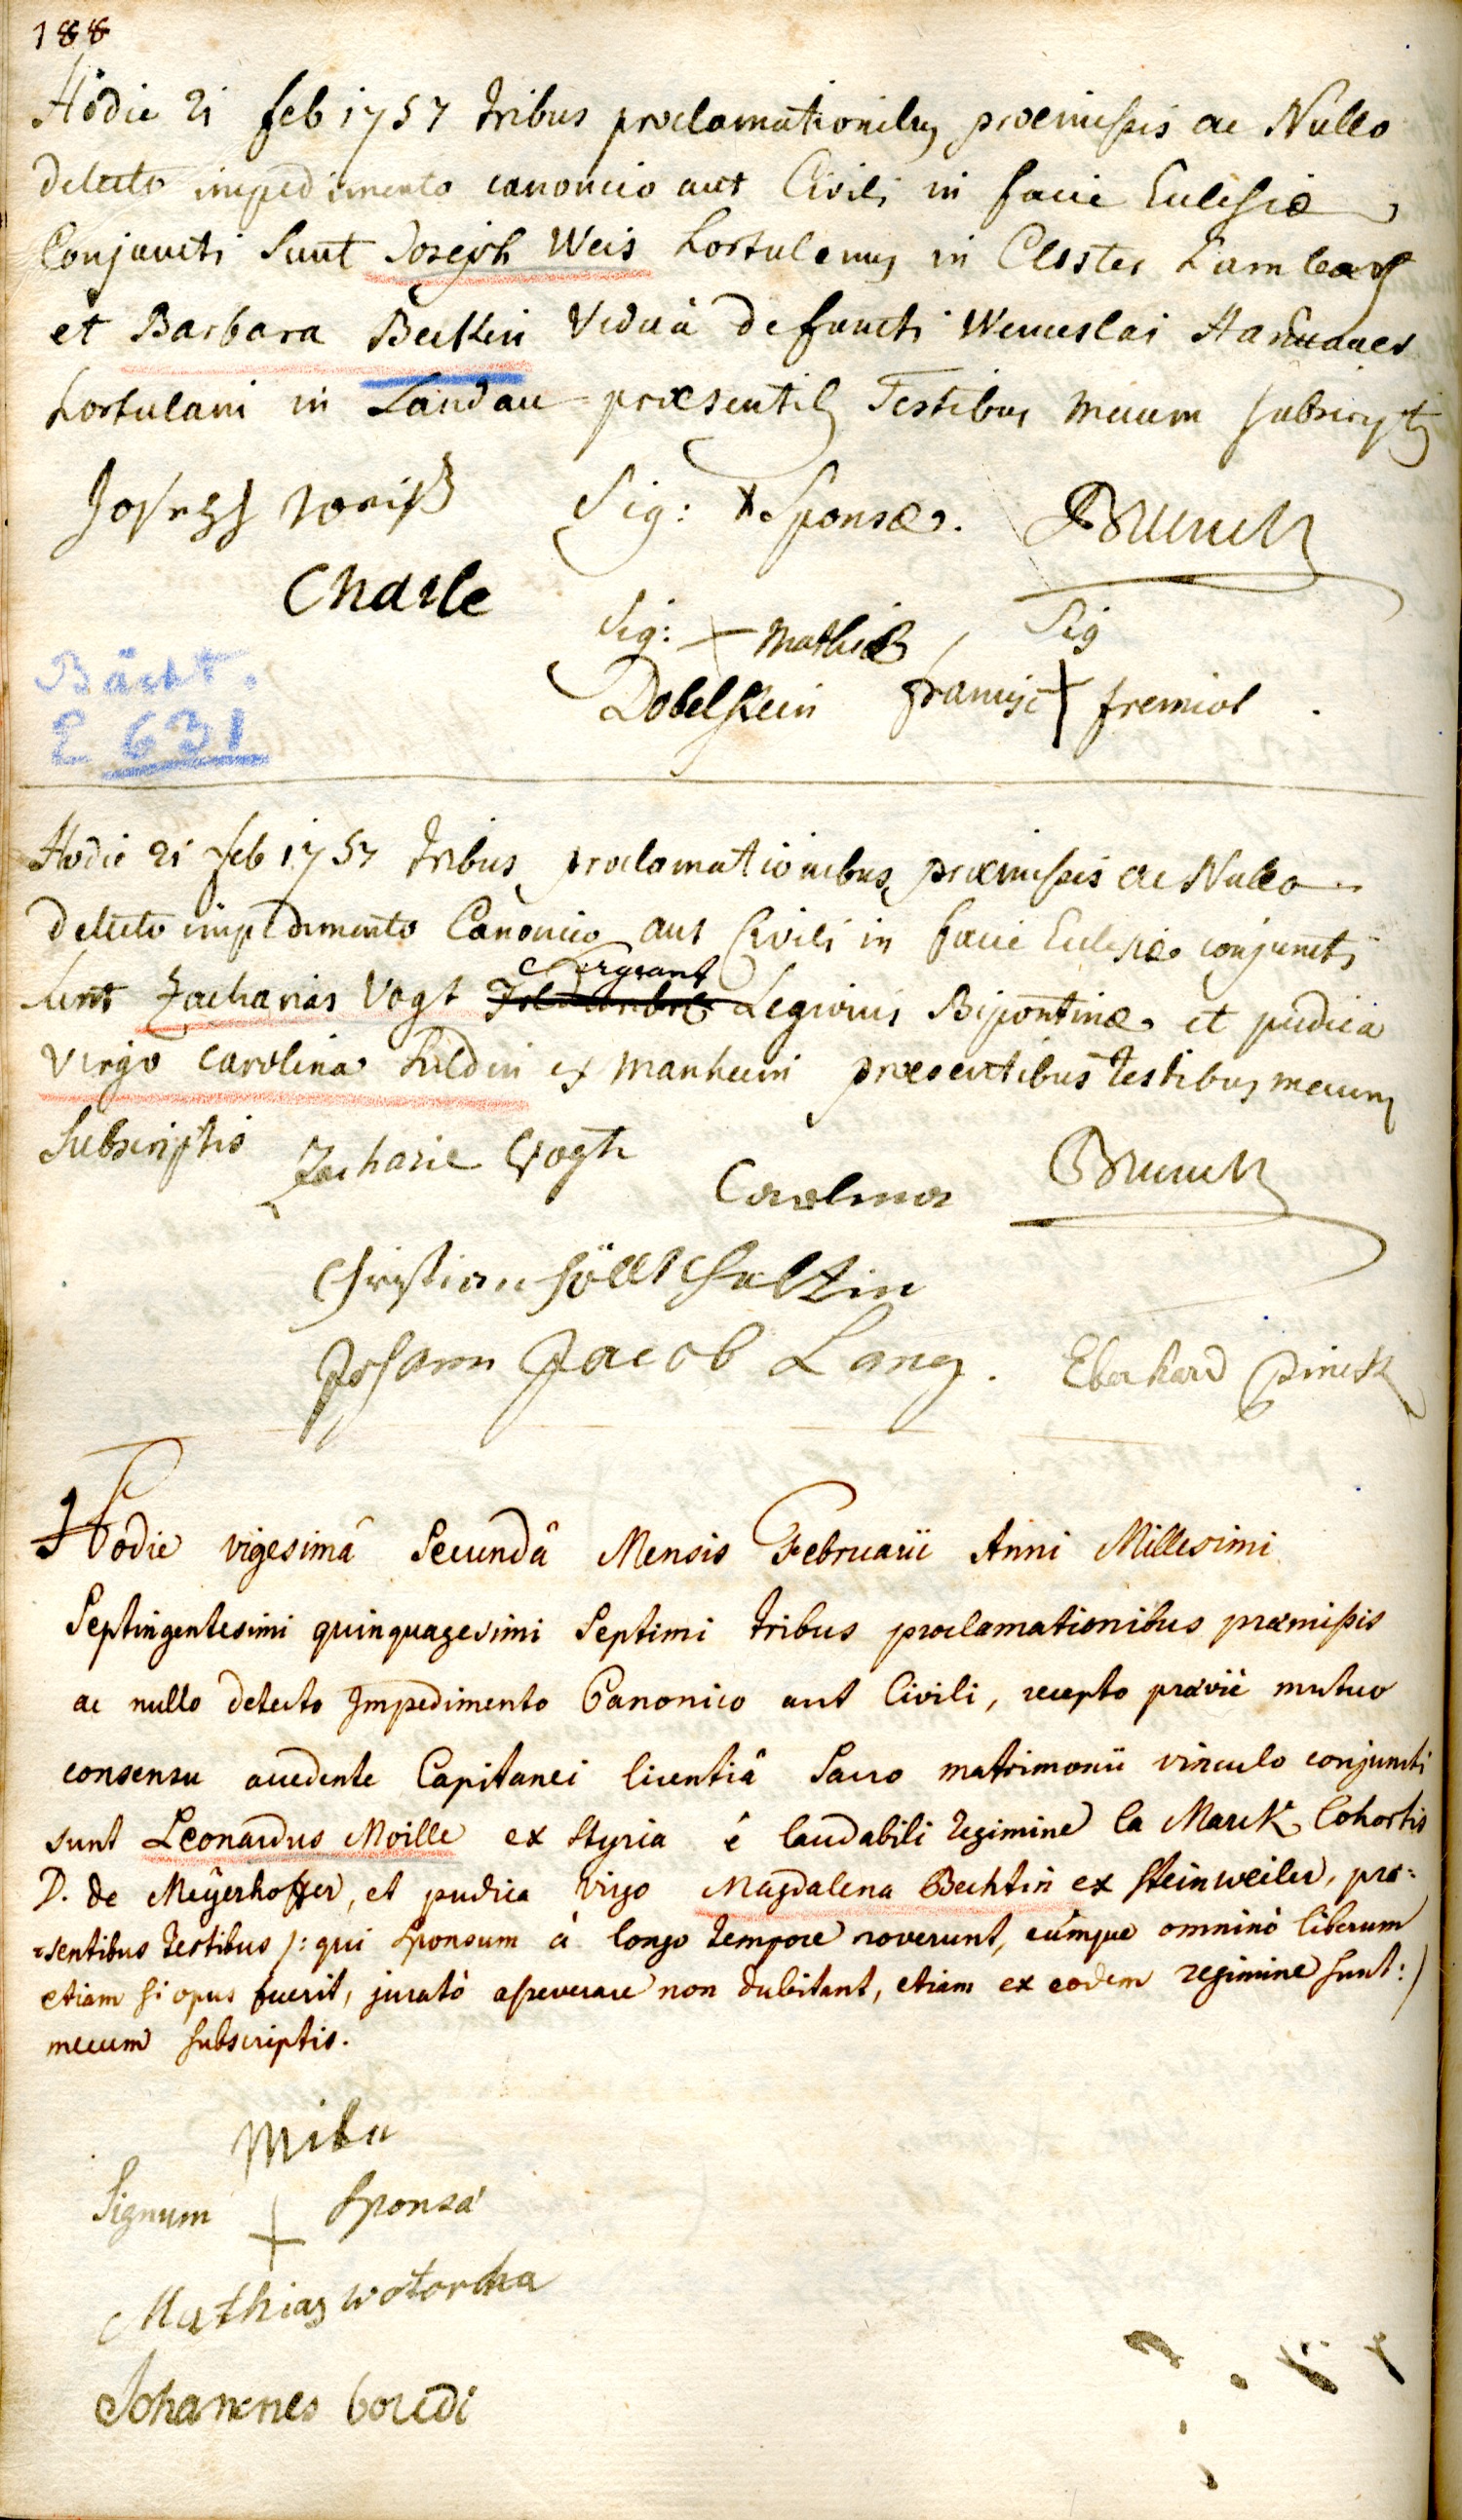 188
Hodie 21 feb 1757 tribus proclamationibus præmissis ac Nullo
detecto impedimento canonico aut Civili in facie Ecclesiæ
Conjuncti sunt Joseph Weis hortulanus in Closter
et Barbara Beckin Vidua defuncti Wenceslai
hortulani in Landau præsentib Testibus mecum subscriptis
Joseph weiß Sig: x Sponsæ. Brunck
Charle
Sig: + Mathiæ Sig
Dobelstein francisc + fremiot.
Bächt.
E 631
Hodie 21 feb 1757 tribus proclamationibus præmissis ac Nullo
detecto impedimento Canonico aut Civili in facie Ecclesiæ conjuncti
Sergeant
sunt Zacharias Vogt Legionis Bipontinæ et pudica
virgo Carolina huldin ex manheim præsentibus testibus mecum
Subscriptis Zacharie Vogt Carolina Brunck
Christian
Johann Jacob Lang. Eberhard
Hodie vigesimâ Secundâ Mensis Februarii Anni Millesimi
Septingentesimi quinquagesimi Septimi tribus proclamationibus præmissis
ac nullo detecto Impedimento Canonico aut Civili, recepto prævie mutuo
consensu accedente Capitanei licentiâ Sacro matrimonii vinculo conjuncti
sunt Leonardus Moille ex Styria è laudabili regimine la Marck Cohortis
D. de Meÿerhoffer, et pudica virgo Magdalena Bechtin ex Steinweiler, præ:
=sentibus testibus /: qui Sponsum à longo tempore noverunt, eúmque omninò liberum
etiam si opus fuerit, juratò asseverare non dubitant, etiam ex eodem regimine sunt :/
mecum subscriptis.
Signum + Sponsa
Mathias wotorcka
Johannes boredi